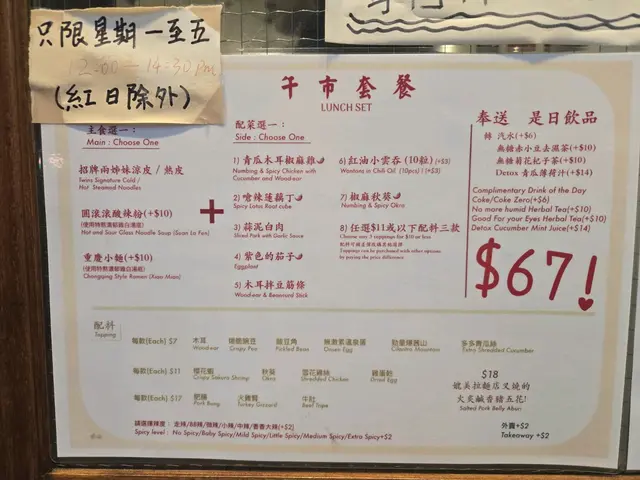 只限星期一至五
12:00 — 14:30 pm
(紅日除外)
午市套餐
LUNCH SET
主食選一：
Main : Choose One
招牌兩姊妹涼皮 / 熱皮
Twins Signature Cold /
Hot Steamed Noodles
圓滾滾酸辣粉(+$10)
(使用特熬濃郁雞白湯底)
Hot and Sour Glass Noodle Soup (Suan La Fen)
重慶小麵(+$10)
(使用特熬濃郁雞白湯底)
Chongqing Style Ramen (Xiao Mian)
+
配菜選一：
Side : Choose One
1) 青瓜木耳椒麻雞
Numbing & Spicy Chicken with
Cucumber and Wood-ear
2) 嗆辣蓮藕丁
Spicy Lotus Root cube
3) 蒜泥白肉
Sliced Pork with Garlic Sauce
4) 紫色的茄子
Eggplant
5) 木耳拌豆筋條
Wood-ear & Beancurd Stick
6) 紅油小雲吞 (10粒) (+$3)
Wontons in Chili Oil (10pcs) (+$3)
7) 椒麻秋葵
Numbing & Spicy Okra
8) 任選$11或以下配料三款
Choose any 3 toppings for $10 or less
配料可補差價改購其他選擇
Toppings can be purchased with other options
by paying the price difference
奉送 是日飲品
轉 汽水(+$6)
無糖赤小豆去濕茶(+$10)
無糖菊花杞子茶(+$10)
Detox 青瓜薄荷汁(+$14)
Complimentary Drink of the Day
Coke/Coke Zero(+$6)
No more humid Herbal Tea(+$10)
Good For your Eyes Herbal Tea(+$10)
Detox Cucumber Mint Juice(+$14)
$67!
配料
Topping
每款(Each) $7
木耳
Wood-ear
Crispy Pea
酸豆角
Pickled Bean
無激素溫泉蛋
Onsen Egg
勁量爆芫山
Cilantro Mountain
多多青瓜絲
Extra Shredded Cucumber
每款(Each) $11
櫻花蝦
Crispy Sakura Shrimp
秋葵
Okra
雲花雞絲
Shredded Chicken
雞蛋乾
Dried Egg
每款(Each) $17
肥腸
Pork Bung
火雞腎
Turkey Gizzard
牛肚
Beef Tripe
$18
媲美拉麵店叉燒的
火炙鹹香豬五花!
Salted Pork Belly Aburi
請選擇辣度： 走辣/BB辣/微辣/小辣/中辣/薈薈大辣(+$2)
Spicy level : No Spicy/Baby Spicy/Mild Spicy/Little Spicy/Medium Spicy/Extra Spicy+$2
外賣+$2
Takeaway +$2